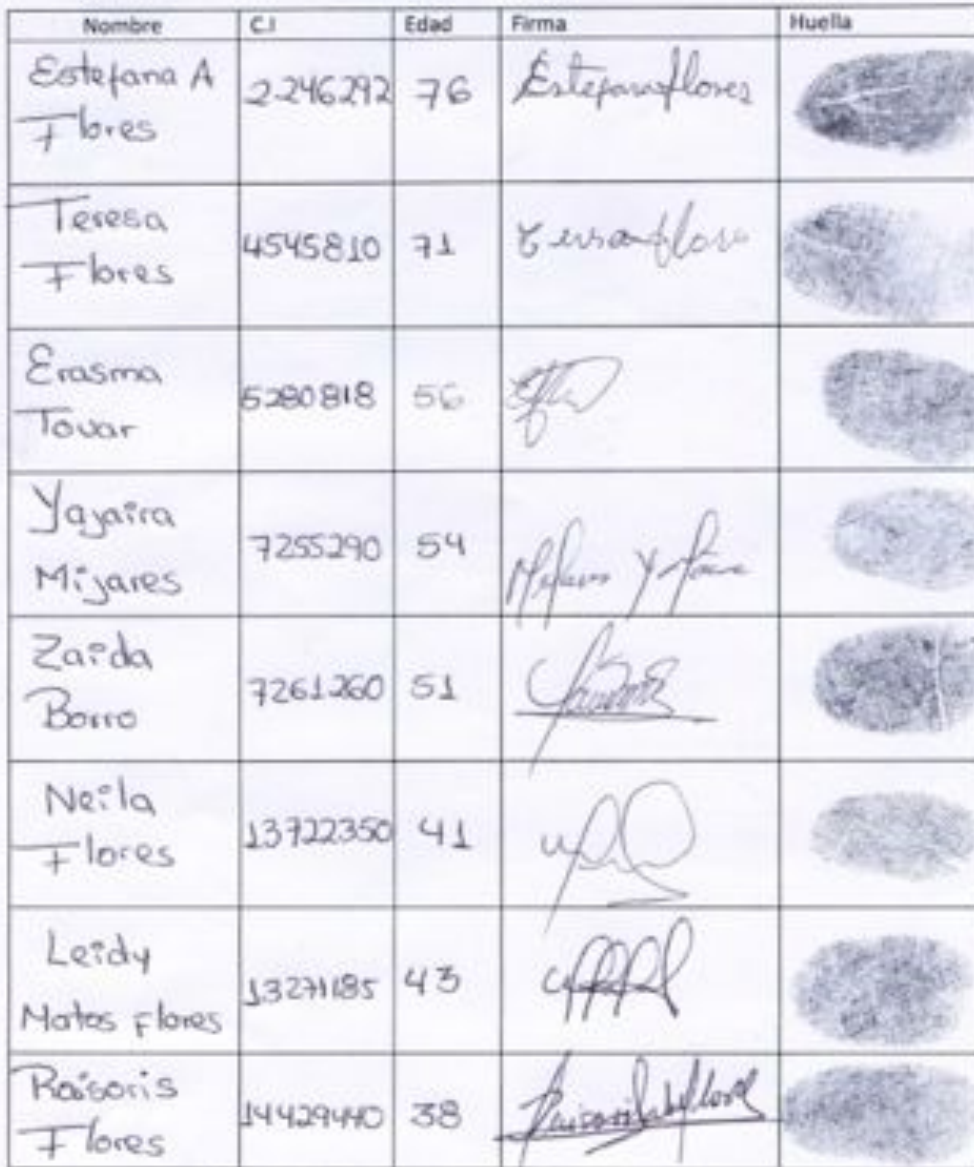 Nombre C.I Edad Firma Huella
Estefana A
Flores
2246292 76 Estefanaflores
Teresa
Flores
4545810 71
Erasma
Tovar
5280818 56
Yajaira
Mijares
7255290 54
Zaida
Borro
7261260 51
Neila
Flores
13722350 41
Leidy
Matos Flores
13271185 43
Raisoris
Flores
14429440 38